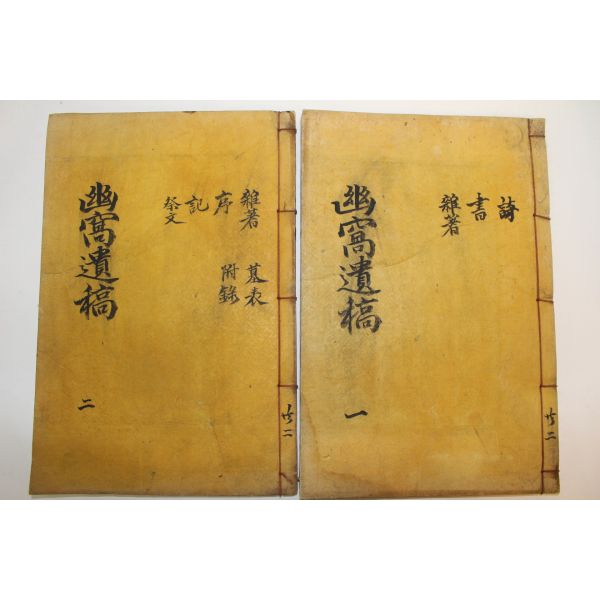 詩
書
雜著
幽窩遺稿
一
共二
雜著 墓表
序 附錄
記
祭文
幽窩遺稿
二
共二